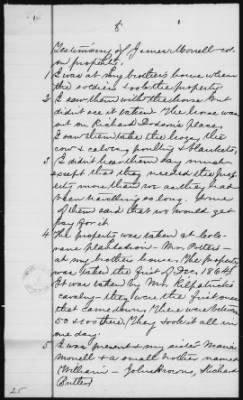 8
Testimony of James Monell - col-
on property.
1 I was at my brother's house when
the soldiers took the property
2 I saw them with the horse but
didn't see it taken. The horse was
out on Richard place.
I saw them take the hogs, the
cow & calves, poultry & blankets,
3 I didn't hear them say much
except that they needed the prop-
erty more than we as they had
been travelling so long. Some
of them said that we would get
pay for it
4 The property was taken at
plantation - Mrs. Potter's -
at my brother's house. The property
was taken the first of Dec, 1864.
It was taken by Mr. Kilpatrick's
cavalry - they were the first ones
that came down. There were between
50 soldiers. They took it all in
one day.
5 I was present & my sister Maria
Monell & a small brother named
William - John Stevens, Richard
Butler
25